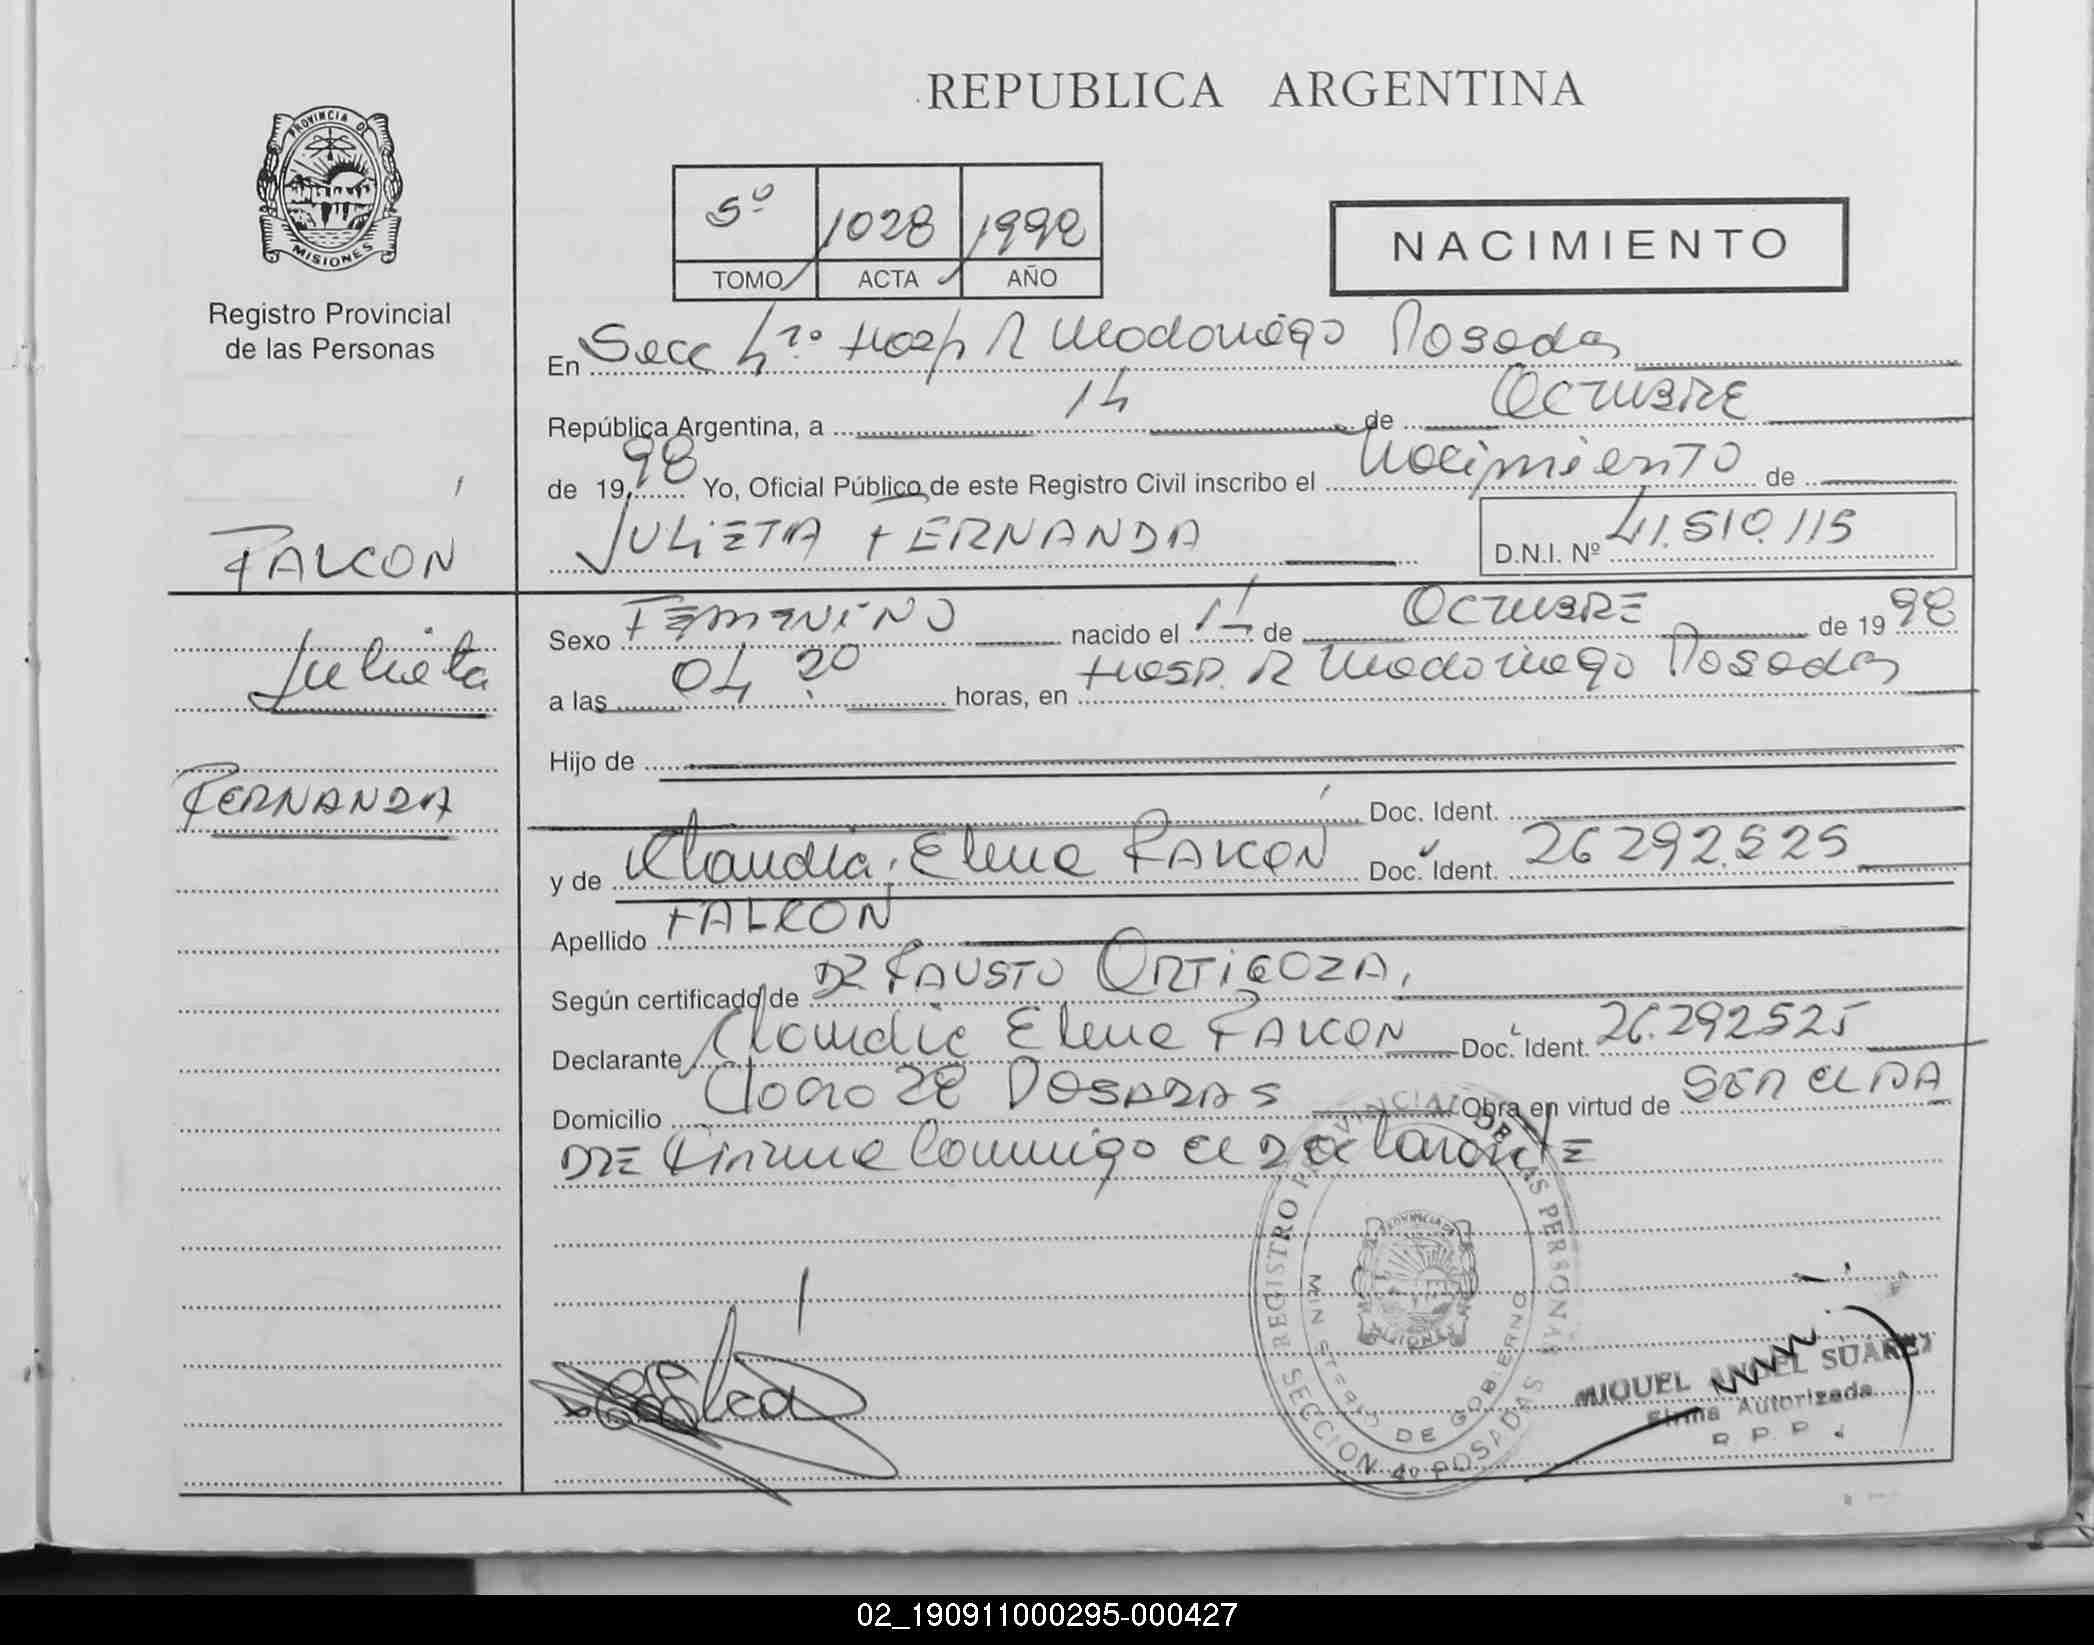 REPUBLICA ARGENTINA
PROVINCIA DE
MISIONES
Registro Provincial
de las Personas
5º 1028 1998
TOMO ACTA AÑO
NACIMIENTO
En Secc 4ta Hosp R Madariaga Posadas
República Argentina, a 14 de OCTUBRE
de 1998 Yo, Oficial Público de este Registro Civil inscribo el Nacimiento de
FALCON
JULIETA FERNANDA
D.N.I. Nº 41.510.115
Julieta
FERNANDA
Sexo FEMENINO nacido el 14 de OCTUBRE de 1998
a las 04 20 horas, en Hosp. R Madariaga Posadas
Hijo de
Doc. Ident.
y de Claudia Elena FALCON Doc. Ident. 26 292.525
Apellido FALCON
Según certificado de DR FAUSTO ORTIGOZA,
Declarante Claudia Elena FALCON Doc. Ident. 26.292525
Domicilio POSADAS Obra en virtud de SER ELDA
DRE Firma Conmigo el Declarante
REGISTRO PROVINCIAL DE LAS PERSONAS
MINISTERIO DE GOBIERNO
PROVINCIA DE
MISIONES
SECCION 4º POSADAS
MIQUEL ANGEL SUAREZ
Firma Autorizada
R P P
02_190911000295-000427